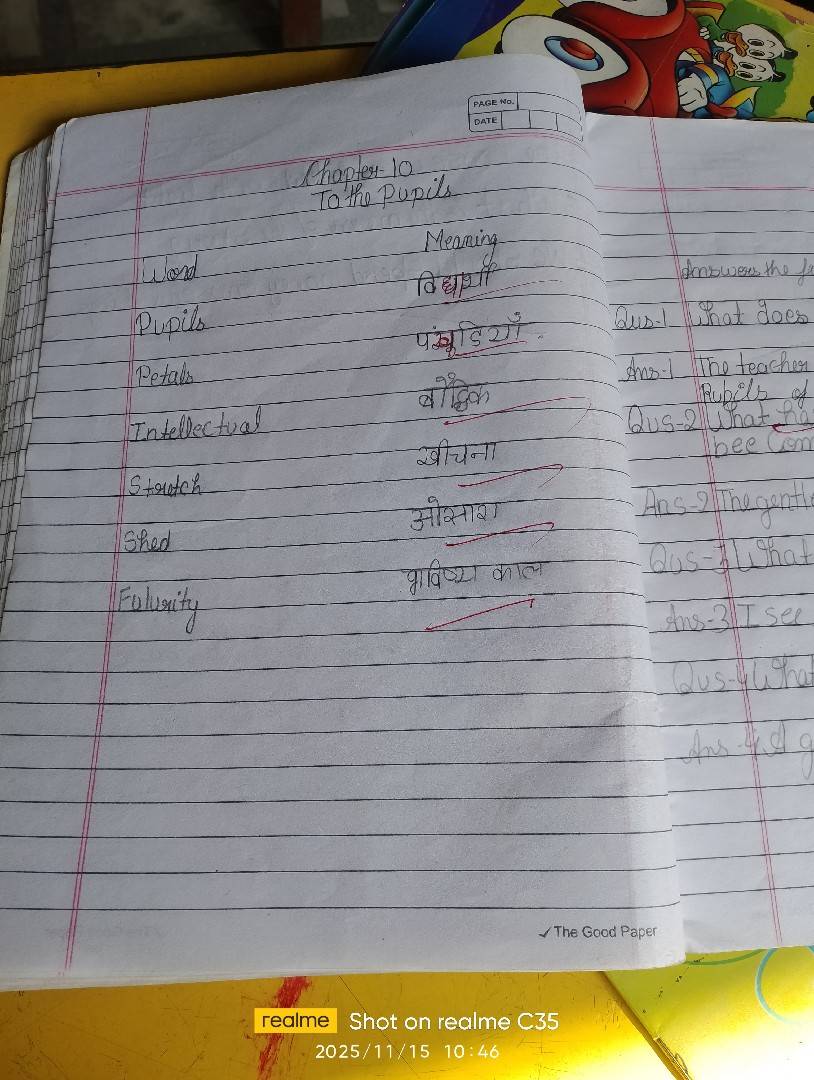 PAGE No.
DATE
Chapter-10
To the Pupils
Word Meaning
Pupils विद्यार्थी
Petals पंखुड़ियाँ
Intellectual बौद्धिक
Stretch खीचना
Shed ओसारा
Futurity भविष्य काल
The Good Paper
Answers the
Qus-1 What does
Ans-1 The teacher
Pupils of
Qus-2 What has
bee com
Ans-2 The gentle
Qus-3 What
Ans-3 I see
Qus-4 What
Ans-4 A g
realme Shot on realme C35
2025/11/15 10:46